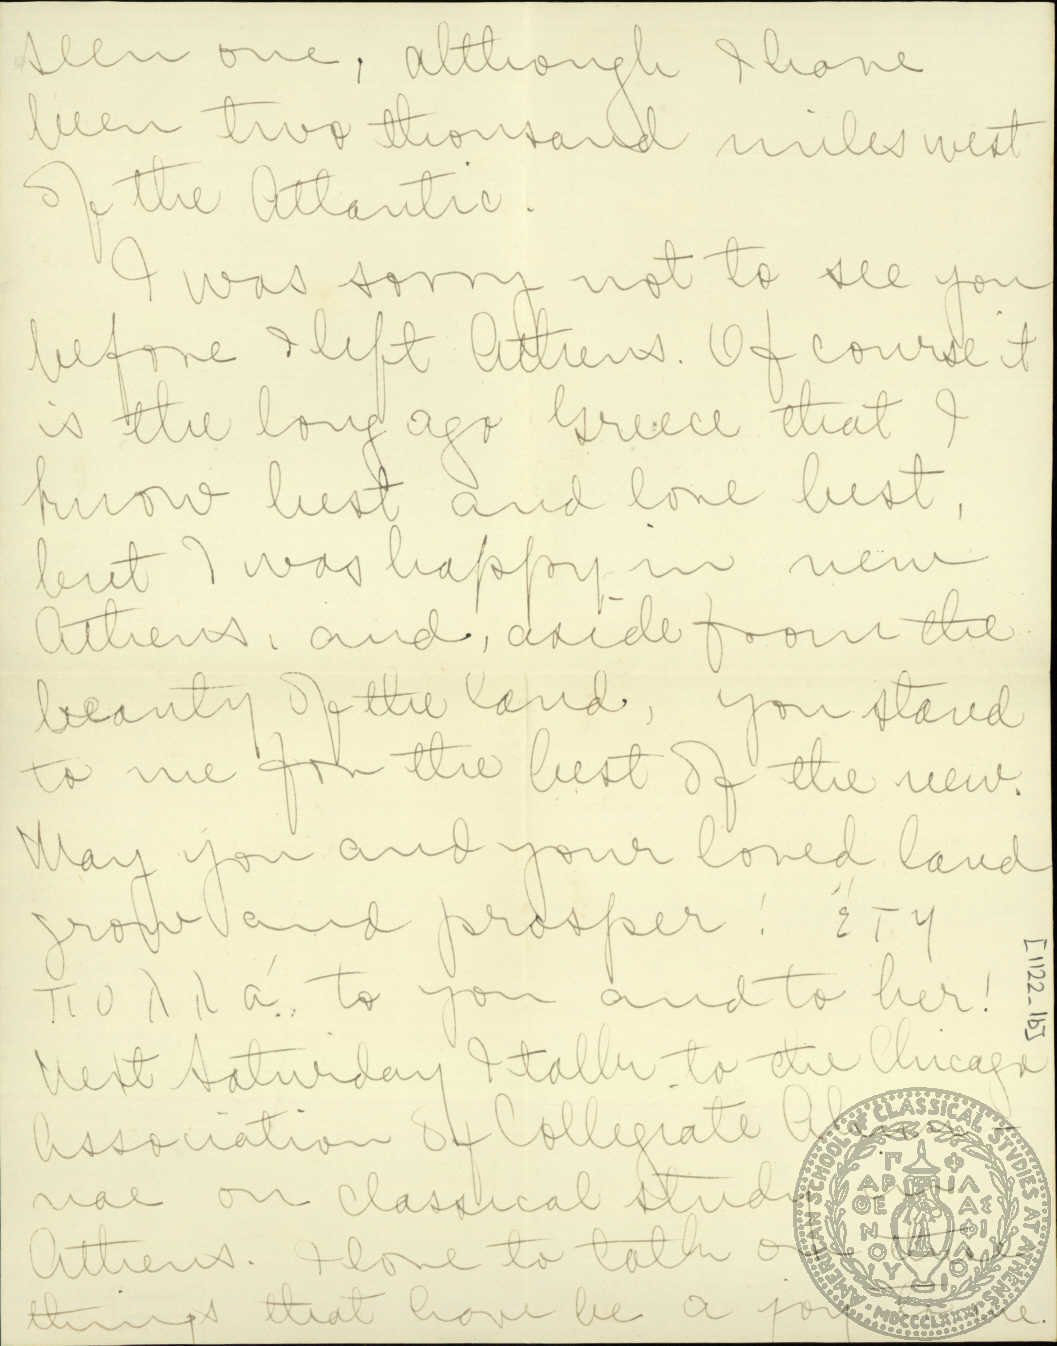 seen one, although I have
been two thousand miles west
of the Atlantic.
I was sorry not to see you
before I left Athens. Of course it
is the long ago Greece that I
know best and love best,
but I was happy in new
Athens, and, aside from the
beauty of the land, you stand
to me for the best of the new.
May you and your loved land
grow and prosper! ἔτη
πολλά to you and to her!
Next Saturday I talk to the Chicago
Association of Collegiate Alum-
nae on classical study in
Athens. I love to talk on the
things that have be a joy to me.
[1122-1b]
AMERICAN SCHOOL OF CLASSICAL STUDIES AT ATHENS
MDCCCLXXXI